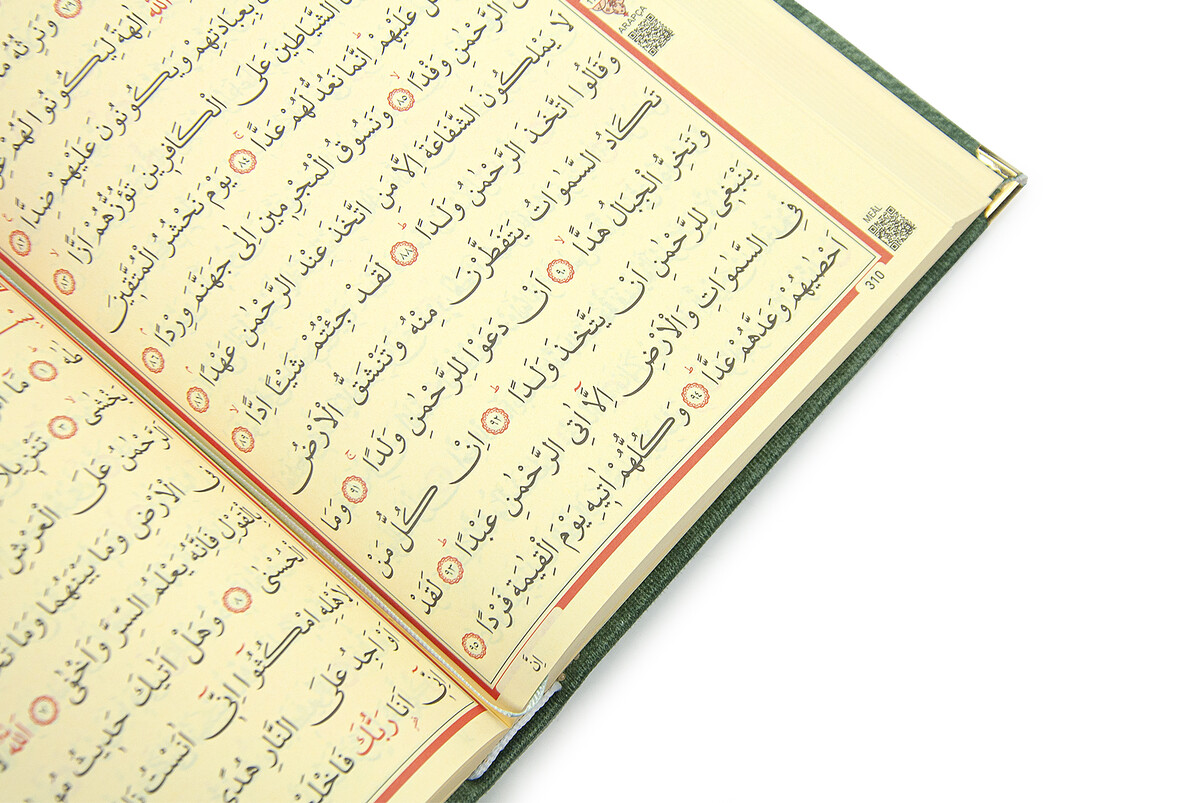 وَنَرِثُهُ مَا
اللّٰهِ اٰلِهَةً لِيَكُونُوا لَهُمْ
بِعِبَادَتِهِمْ وَيَكُونُونَ عَلَيْهِمْ ضِدًّا ﴿٨٢﴾
الشَّيَاطِينَ عَلَى الْكَافِرِينَ تَؤُزُّهُمْ اَزًّا ﴿٨٣﴾
عَلَيْهِمْ اِنَّمَا نَعُدُّ لَهُمْ عَدًّا ﴿٨٤﴾ يَوْمَ نَحْشُرُ الْمُتَّقِينَ
الرَّحْمٰنِ وَفْدًا ﴿٨٥﴾ وَنَسُوقُ الْمُجْرِمِينَ اِلٰى جَهَنَّمَ وِرْدًا ﴿٨٦﴾
لَا يَمْلِكُونَ الشَّفَاعَةَ اِلَّا مَنِ اتَّخَذَ عِنْدَ الرَّحْمٰنِ عَهْدًا ﴿٨٧﴾
وَقَالُوا اتَّخَذَ الرَّحْمٰنُ وَلَدًا ﴿٨٨﴾ لَقَدْ جِئْتُمْ شَيْـًٔا اِدًّا ﴿٨٩﴾
تَكَادُ السَّمٰوَاتُ يَتَفَطَّرْنَ مِنْهُ وَتَنْشَقُّ الْاَرْضُ
وَتَخِرُّ الْجِبَالُ هَدًّا ﴿٩٠﴾ اَنْ دَعَوْا لِلرَّحْمٰنِ وَلَدًا ﴿٩١﴾ وَمَا
يَنْبَغِي لِلرَّحْمٰنِ اَنْ يَتَّخِذَ وَلَدًا ﴿٩٢﴾ اِنْ كُلُّ مَنْ
فِي السَّمٰوَاتِ وَالْاَرْضِ اِلَّٓا اٰتِي الرَّحْمٰنِ عَبْدًا ﴿٩٣﴾ لَقَدْ
اَحْصٰيهُمْ وَعَدَّهُمْ عَدًّا ﴿٩٤﴾ وَكُلُّهُمْ اٰتِيهِ يَوْمَ الْقِيٰمَةِ فَرْدًا ﴿٩٥﴾
اِنَّ
ARAPÇA
MEAL
310
طٰهٰ ﴿١﴾ مَٓا
﴿٣﴾ تَنْزِيلًا
اَلرَّحْمٰنُ عَلَى الْعَرْشِ
الْاَرْضِ وَمَا بَيْنَهُمَا وَمَا
بِالْقَوْلِ فَاِنَّهُ يَعْلَمُ السِّرَّ وَاَخْفٰى ﴿٧﴾ اَللّٰهُ
الْحُسْنٰى ﴿٨﴾ وَهَلْ اَتٰيكَ حَدِيثُ
لِاَهْلِهِ امْكُثُٓوا اِنّ۪ٓي اٰنَسْتُ
اَوْ اَجِدُ عَلَى النَّارِ هُدًى
اِنّ۪ٓي اَنَا۬ رَبُّكَ فَاخْلَعْ